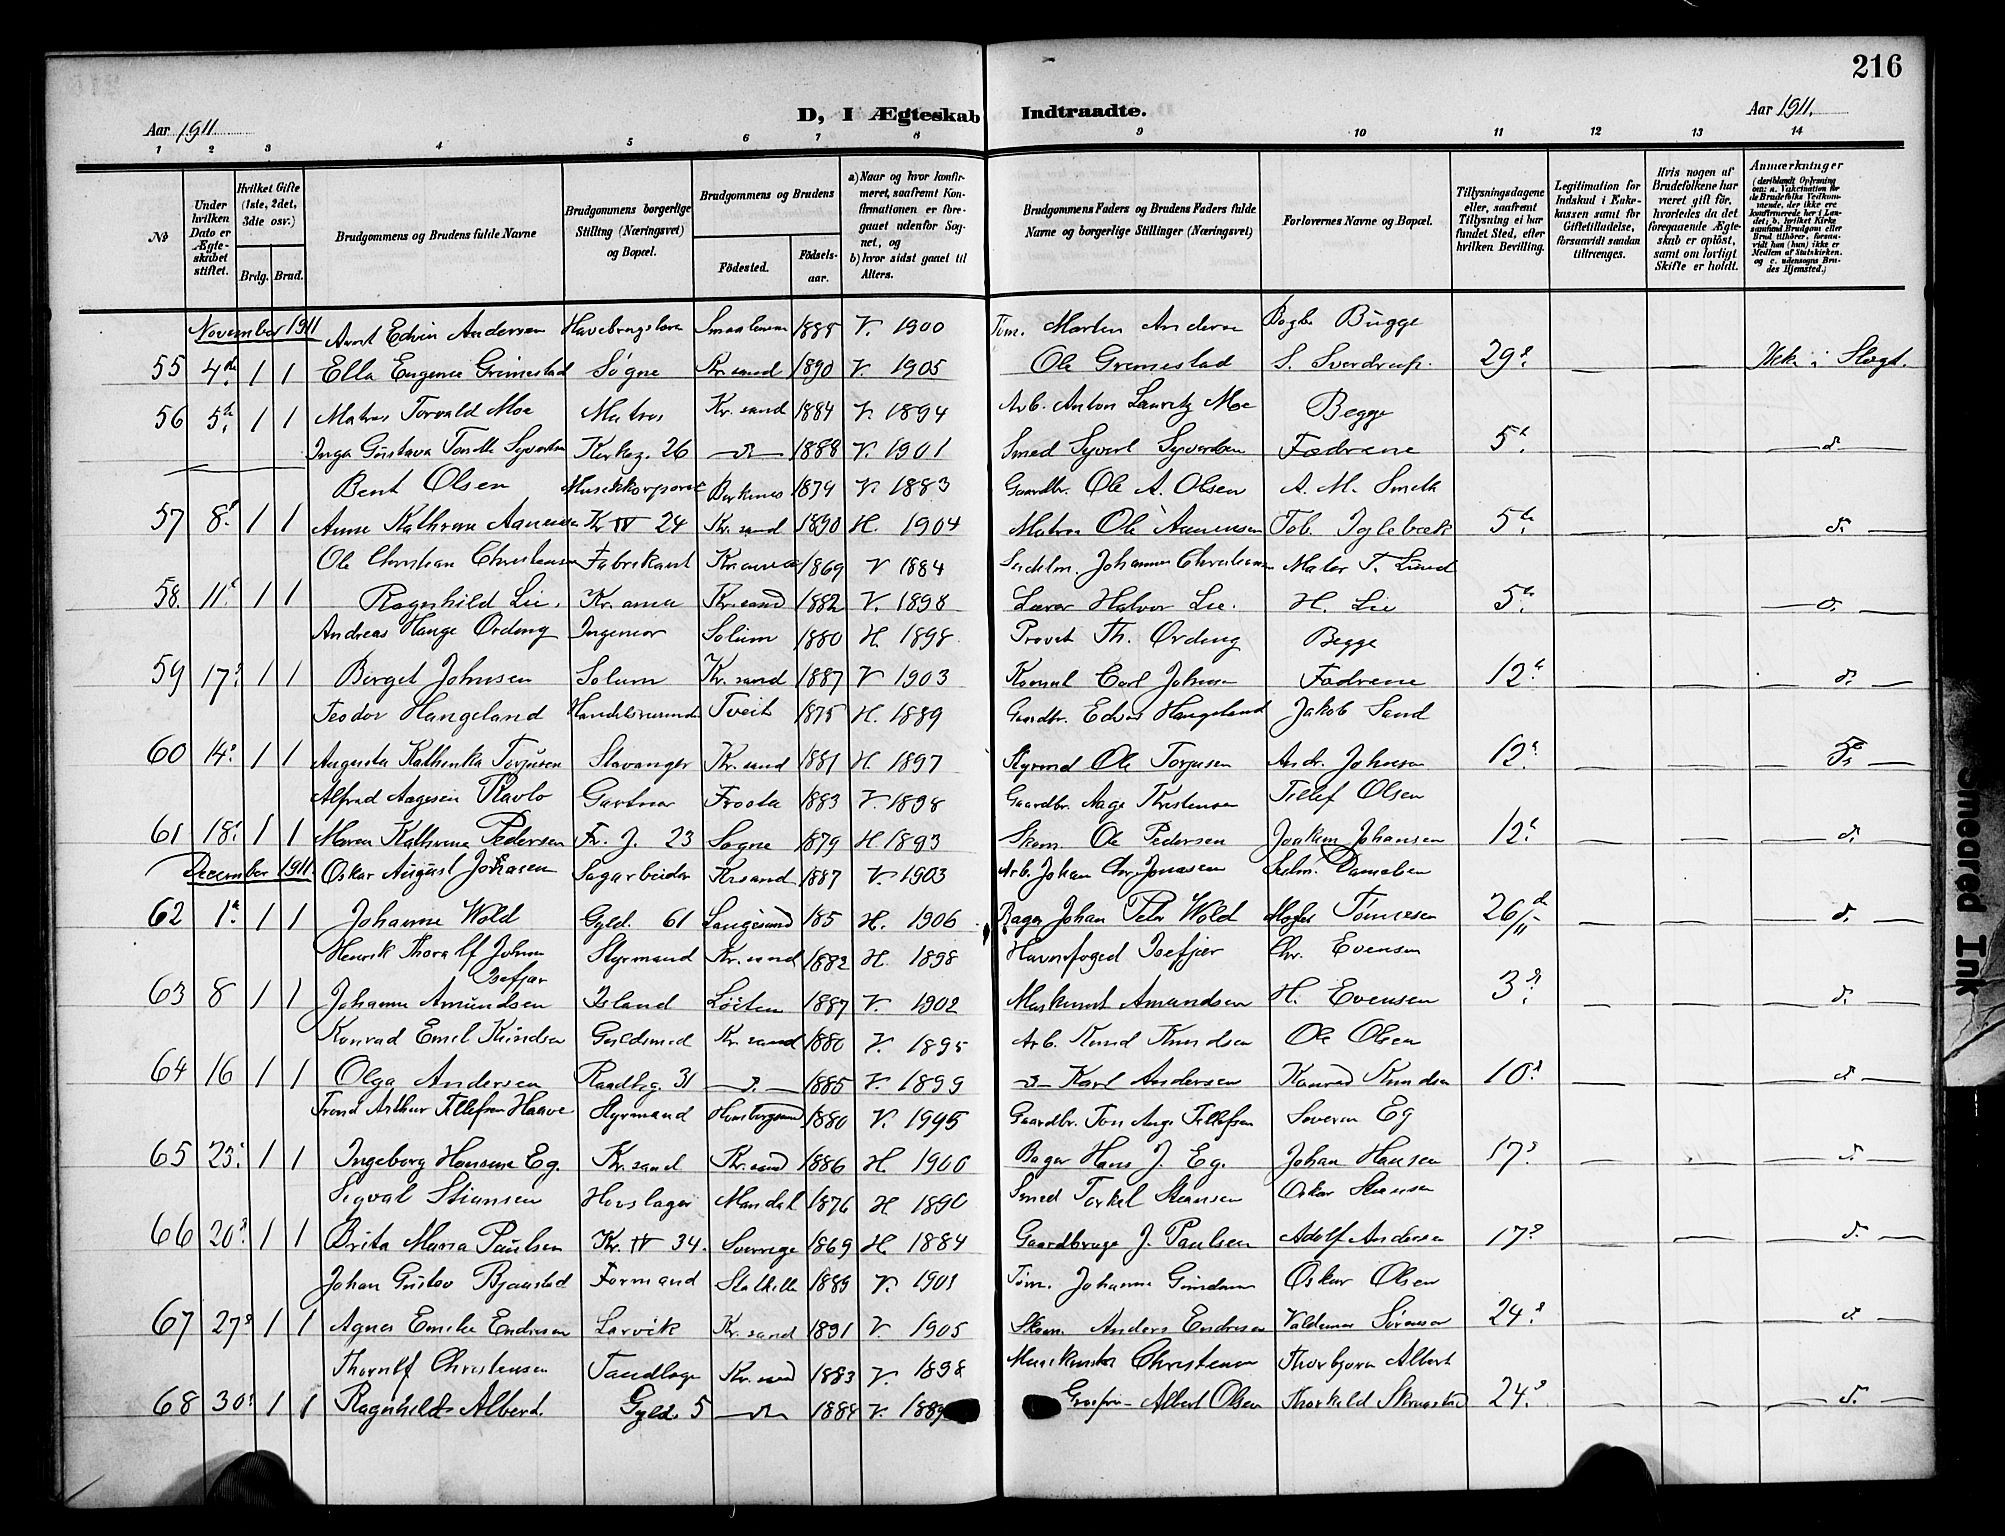 216
D, I Ægteskab Indtraadte.
Aar 1911
Aar 1911.
1 2 3 4 5 6 7 8 9 10 11 12 13 14
No
Under hvilken Dato er Ægteskabet stiftet.
Hvilket Gifte (1ste, 2det, 3die osv.)
Brdg. Brud.
Brudgommens og Brudens fulde Navne
Brudgommens borgerlige Stilling (Næringsvei) og Bopæl.
Brudgommens og Brudens
Födested. Födselsaar.
a) Naar og hvor konfirmeret, saafremt Konfirmationen er foregaaet udenfor Sognet, og
b) hvor sidst gaaet til Alters.
Brudgommens Faders og Brudens Faders fulde Navne og borgerlige Stillinger (Næringsvei)
Forlovernes Navne og Bopæl.
Tillysningsdagene eller, saafremt Tillysning ei har fundet Sted, efter hvilken Bevilling.
Legitimation for Indskud i Enkekassen samt for Giftetilladelse, forsaavidt saadan tiltrænges.
Hvis nogen af Brudefolkene har været gift før, hvorledes da det foregaaende Ægteskab er opløst, samt om lovligt Skifte er holdt.
Anmærkninger
(deriblandt Oplysning om: a. Vaksination for de Brudefolks Vedkommende, der ikke ere konfirmerede her i Landet; b. hvilket Kirkesamfund Brudgom eller Brud tilhører, forsaavidt han (hun) ikke er Medlem af Statskirken, og c. udensogns Brudes Hjemsted.)
November 1911 Edvin Andersen 1885 V. 1900 Tøm. Martin Bugge
55 4de 1 1 Ella Eugenie Grimestad Søgne Kr.sand 1890 V. 1905 Ole Grimestad S. Sverdrup. 29d. — — Ikke i Slægt.
56 5te 1 1 Matros Torvald Moe Matros Kr. sand 1884 V. 1894 Arb. Anton Lauritz Moe Begge
Inga Gustava Syvertsen Kirkeg. 26 —d— 1888 V. 1901 Smed Syvert Syvertsen Fædrene 5t. — — d.
Bent Olsen Birkenes 1874 V. 1883 Gaardbr. Ole A. Olsen A. M. Smith
57 8d. 1 1 Anne Kathrine Aanensen Kr. IV 24 Kr. sand 1890 H. 1904 Matros Ole Aanensen Tob. Iglebæk 5te. — — d.
Ole Christian Christensen Fabrikant Kr.ania 1869 V 1884 Johannes Christiansen Maler T. Lund
58. 11t 1 1 Ragnhild Lie. Kr. ania Kr.sand 1882 V. 1898 Lærer Halvor Lie. H. Lie 5te. — — d.
Andreas Hauge Ording Ingeniør Solum 1880 H. 1898. Provst Th. Ording Begge
59 17d. 1 1 Birgit Johnsen Solum Kr. sand 1887 V 1903 Konsul Carl Johnsen Fædrene 12t. — — d.
Teodor Hangeland Tveit 1875 H. 1889 Gaardbr. Hangeland Jakob Sand
60 14d. 1 1 Augusta Kathinka Torjusen Stavanger Kr. sand 1881 H. 1897 Styrmd Ole Torjusen Andr. Johnsen 12t. — — d.
Alfred Aagesen Ravlo Gartner Frosta 1883 V. 1898 Gaardbr. Aage Kristensen Tellef Olsen
61 18d. 1 1 Maren Kathrine Pedersen Fr. J. 23 Søgne 1879 H. 1893 Skom. Ole Pedersen Joakim Johansen 12t. — — d.
December 1911. Oskar August Jonasen Sagarbeider Kr.sand 1887 V. 1903 Arb. Johan Chr. Jonassen Danielsen
62 1ste 1 1 Johanne Wold Gyld. 61 Langesund 185 H. 1906 Bager Johan Peter Wold Tønnesen 26d/11 — — d.
Henrik Thoralf Johan Isefjær Styrmand Kr. sand 1882 H. 1898 Havnefoged Isefjær Chr. Evensen
63 8 1 1 Johanne Amundsen Island Løiten 1887 V. 1902 Maskinist Amundsen H. Evensen 3d. — — d.
Konrad Emil Knudsen Guldsmed Kr. sand 1880 V. 1895 Arb. Knud Knudsen Ole Olsen
64 16 1 1 Olga Andersen Raadhg. 31 —d.— 1885 V. 1899 —d— Karl Andersen Konrad Knudsen 10d. — — d
Trond Arthur Tellefsen Haave Styrmand 1880 V. 1995 Gaardbr. Jon Aug. Tellefsen Severin Eg
65 23d. 1 1 Ingeborg Hansine Eg. Kr. sand Kr. sand 1886 H. 1900 Bager Hans J. Eg. Johan Hansen 17d. — — d.
Sigval Stiansen Hovslager Mandal 1876 H 1890 Smed Torkel Stiansen Oskar Stiansen
66 20d. 1 1 Brita Maria Paulsen Kr. IV 34. Sverrige 1869 H 1884 Gaardbruge J. Paulsen Adolf Andersen 17d — — d.
Johan Gustav Bjaastad Formand Stathelle 1889 V. 1901 Tøm. Johannes Oskar Olsen
67 27d 1 1 Agnes Emilie Endresen Larvik Kr. sand 1891 V. 1905 Skom. Anders Endresen Valdemar Sørensen 24d. — — d
Thoralf Christensen Tandlæge Kr. sand 1883 V. 1898 Christensen Thorbjørn Albert
68 30d 1 1 Ragnhild Albert. Gyld. 5 —d— 1884 V. Albert Olsen Thorkild 24d. — — d.
Smeared Ink